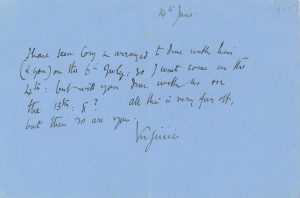 14th June
I have seen Cory & arranged to dine with him
(& you) on the 6th July: so I wont come on the
4th: but will you dine with us on
the 13th: 8? all this is very far off,
but then so are you.
Virginia